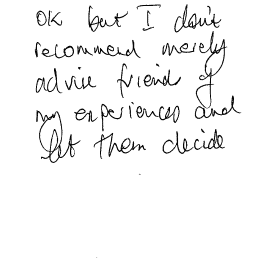 OK but I don't
recommend merely
advise friends of
my experiences and
let them decide